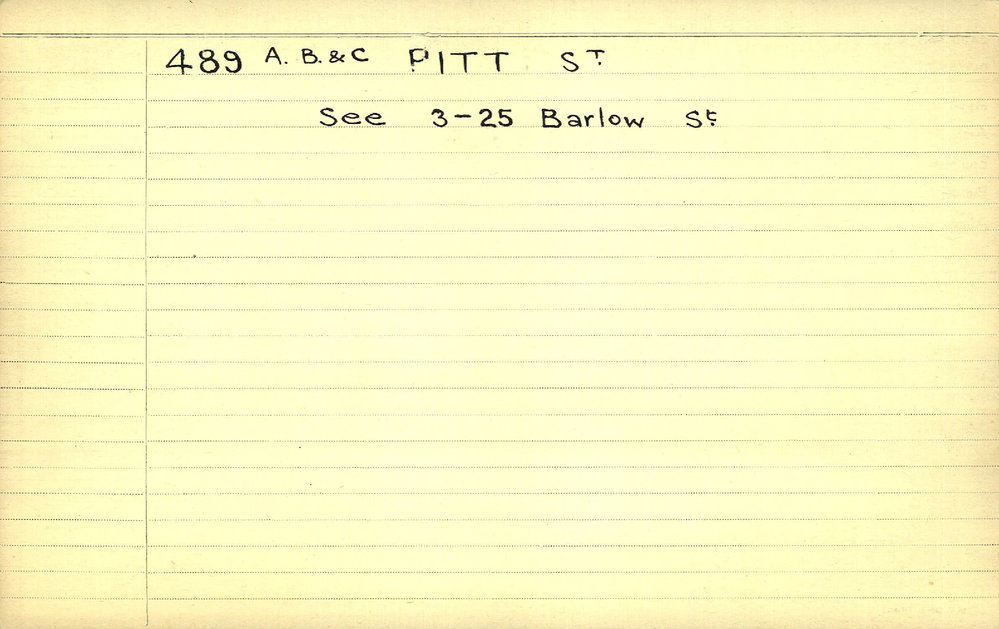 489 A. B. & C PITT ST
See 3-25 Barlow St